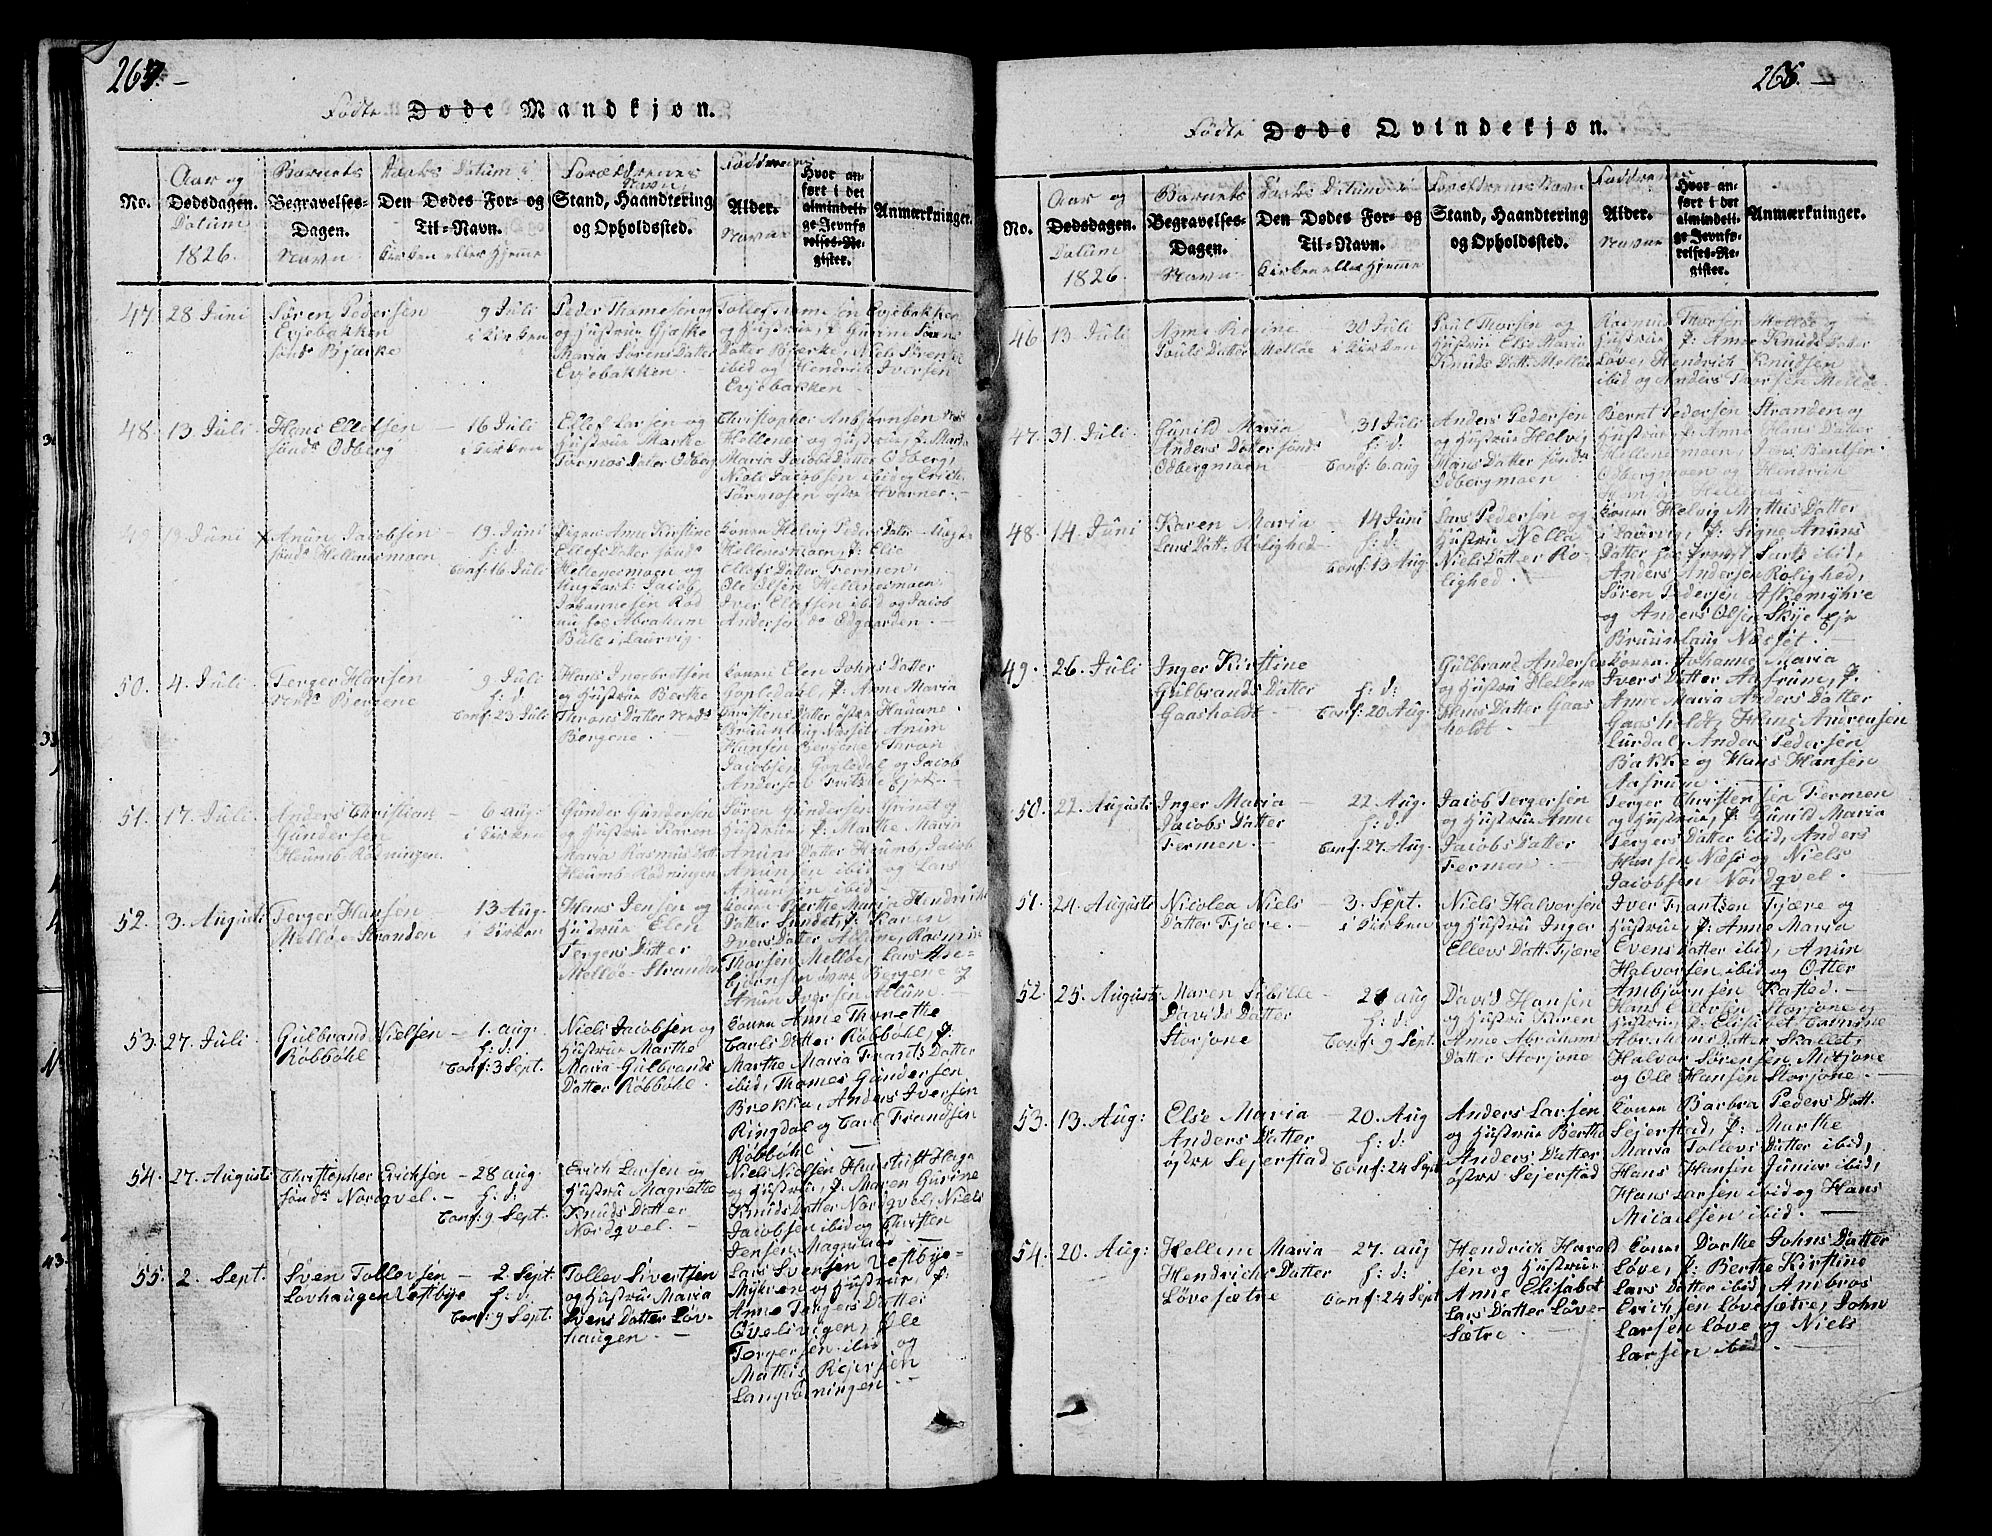 267. —
Fødte Døde Mandkjøn.
No.
Aar og
Dødsdagen.
Datum
1826.
Barnets
Begravelses-
Dagen.
Navn
Daabs Datum i
Den Dødes For- og
Til-Navn.
Kirken eller Hjemme
Forældrenes
Navn
Stand, Haandtering
og Opholdssted.
Faddernes
Alder.
Navne
Hvor an-
ført i det
almindeli-
ge Jevnfø-
relses-Re-
gister.
Anmærkninger.
47. 28 Juni
Søren Pedersen
Evjebakken
sønd. Bjerke
9 Juli
i Kirken
Peder Thomesen og
og Hustrue Giæske
Maria Sørens Datter
Evjebakken.
ibid og Hendrich Iversen
Evjebakken
48. 13 Juli
Hans Ellefsen
sønd. Odberg
16 Juli
i Kirken
Ellef Larsen og
Hustrue Marthe
Tormos Datter Odberg
Maria Jacobs Datter Odberg,
Niels Jacobsen ibid og Erich
Tormosen østre Hvarnes.
49. 19 Juni
Anun Jacobsen
sønd. Hellenesmoen
19 Juni
h: d:
Conf: 16 Juli
Pigen Anne Kirstine
Ellefs Datter sønd.
Hellenesmoen og
Ungkarl Jacob
Johannesen Rød
nu hos Abraham
Bule i Laurvig.
Konen Helvig Peders Datter
Hellenesmoen, P: Elie
Ellefs Datter Fermen,
Ole Olsen Hellenesmoen
Iver Elefsen ibid og Jacob
Andersen Odgaarden. —
50. 4. Juli
Terger Hansen
nord. Bergene
9 Juli
h: d:
Conf: 23 Juli
Hans Ingebretsen
og Hustrue Berthe
Throns Datter nord.
Bergene. —
Konen Elen Johns Datter
Gopledahl, P: Anne Maria
Christens Datter østre Hauane
Bruunlaug Næsset, Anun
Hansen Bergene, Thron
Jacobsen Gopledal og Jacob
Andersen Fritsøe Ejet. —
51. 17. Juli
Anders Christian
Gundersen
Heumb-Rødningen
6 Aug:
i Kirken
Gunder Gundersen
og Hustrue Karen
Maria Rasmus Datt.
Heumb-Rødningen
Søren Gundersen Grinet og
Hustrue, P: Marthe Maria
Anuns Datter Heumb, Jacob
Anunsen ibid og Lars
Anunsen ibid.
52. 3. Augusti
Terger Hansen
Melløe-Stranden
13 Aug.
i Kirken
Hans Jensen og
Hustrue Elen
Tergers Datter
Melløe-Stranden
Konen Berthe Maria Hendrichs
Datter Sundet, P: Karen
Ivers Datter Allum, Rasmus
Thorsen Melløe, Lars Ase-
bjørnsen øvre Bergene og
Anun Iversen Allum. —
53. 27. Juli
Gulbrand Nielsen —
Røbbøhl
1. aug:
h: d:
Conf: 3 Sept.
Niels Jacobsen og
Hustrue Marthe
Maria Gulbrands
Datter Røbbøhl.
Konen Anne Thonette
Carls Datter Røbbøhl, P:
Marthe Maria Frants Datter
ibid, Thomes Gundersen
Brekka, Anders Iversen
Ringdal og Carl Frandsen
Røbbøhl —
54. 27. Augusti
Christopher Erichsen
sønd. Nordqvel. —
28 aug
h: d:
Conf: 9 Sept.
Erich Larsen og
Hustrue Magrethe
Knuds Datter
Nordqvel. —
og Hustrue, P: Maren Gurine
Knuds Datter Nordqvel, Niels
Jacobsen ibid og Christen
Jensen
55. 2. Sept.
Sven Tollevsen —
Lovhaugen Vestbye
2. Sept
h: d:
Conf: 9 Sept.
Tollev Sivertsen
og Hustrue Maria
Svens Datter Løv-
haugen. —
Lars Svensen Vestbye-
Myhren og Hustrue, P:
Anne Targers Datter
Qvelivigen, Ole
Tergersen ibid og
Mathis Rejersen
Langrønningen. —
268. —
Fødte Døde Qvindekjøn.
No.
Aar og
Dødsdagen.
Datum
1826.
Barnets
Begravelses-
Dagen.
Navn
Daabs Datum i
Den Dødes For- og
Til-Navn.
Kirken eller Hjemme
Forældrenes Navn
Stand, Haandtering
og Opholdssted.
Faddernes
Alder.
Navne
Hvor an-
ført i det
almindeli-
ge Jevnfø-
relses-Re-
gister.
Anmærkninger.
46 13 Juli
Anne Regine
Pouls Datter Melløe
30 Juli
i Kirken
Paul Thorsen og
Hustrue Else Maria
Knuds Datt. Melløe
Rasmus Thorsen Melløe og
Hustrue P: Anne Knuds Datter
Løve, Hendrich Knudsen
ibid og Anders Thorsen Melløe.
47. 31. Juli.
Gunild Maria
Anders Datter sønd.
Odbergmoen
31 Juli
h: d:
Conf: 6. aug
Anders Pedersen
og Hustrue Helvig
Hans Datter sønd.
Odbergmoen
Bernt Pedersen Stranden og
Hustrue P: Anne Hans Datter
Hellenesmoen, Jens Bentsen
Odbergmoen og Hendrich
48. 14 Juni
Karen Maria
Lars Datt. Rolighed
— 14 Juni
h: d:
Conf: 13 Aug.
Lars Pedersen og
Hustrue Nella
Niels Datter Ro-
lighed.
Konen Helvig Mathis Datter
i Laurvig, P: Signe Anuns
Datter
Anders Andersen Rolighed,
Søren Pedersen Askemyhre
og Anders Olsen Skye Ejr
Bruunlaug Næsset. —
49. 26. Juli
Inger Kirstine
Gulbrands Datter
Gaasholdt
h: d:
Conf: 20 Aug.
Gulbrand Andersen
og Hustrue Hellene
Hans Datter Gaas
holdt.
Konen Johanne Maria
Ivers Datter Aasrum, P.
Anne Maria Anders Datter
Gaasholdt, Hans Andreasen
Lurdal, Anders Pedersen
Bakke og Hans Hansen
Aasrum. —
50. 22. Augusti
Inger Maria
Jacobs Datter
Fermen. —
22. Aug.
h: d:
Conf: 27. Aug.
Jacob Tergersen
og Hustrue Anne
Jacobs Datter
Fermen. —
Terger Christensen Fermen
og Hustrue, P: Gunild Maria
Tergers Datter ibid, Anders
Hansen Næss og Niels
Jacobsen Nordqvel. —
51. 24. Augusti
Nicolea Niels
Datter Fjære. —
— 3. Sept.
i Kirken
Niels Halvorsen
og Hustrue Inger
Ellevs Datt. Fjære
Iver Frantsen Fjære og
Hustrue, P: Anne Maria
Evens Datter ibid, Anun
Halvorsen ibid og Otter
Ambjørnsen Kasted. —
52. 25. Augusti
Maren Sibille —
Davids Datter
Storjone
28 aug
h: d:
Conf: 9 Sept.
David Hansen
og Hustrue Karen
Anne Abraham
Datter Storjone
Hans Ellefsen Storjone og
Hustrue, P: Elisabet Catrine
Abrahams Datter Skallet,
Halvor Sørensen Mitjone
og Ole Hansen Storjone. —
53. 13. Aug:
Else Maria —
Anders Datter
østre Sejerstad
20. Aug
h: d:
Conf: 24 Sept.
Anders Larsen
og Hustrue Berthe
Anders Datter
østre Sejerstad
Konen Barbra Peders Datt.
Sejerstad, P: Marthe
Maria Tollevs Datter ibid,
Hans Hansen Junior ibid,
Hans Larsen ibid og Hans
Micaelsen ibid. —
54. 20. Aug:
Hellene Maria
Hendrichs Datter
Løvesætre
27. aug
h: d:
Conf: 24 Sept.
Hendrich Harald
sen og Hustrue
Anne Elisabet
Lars Datter Løve-
sætre. —
Konen Dorthe Johns Datter
Løve, P: Berthe Kirstine
Lars Datter ibid, Ambros
Erichsen Løvesætre, John
Larsen Løve og Niels
Larsen ibid. —